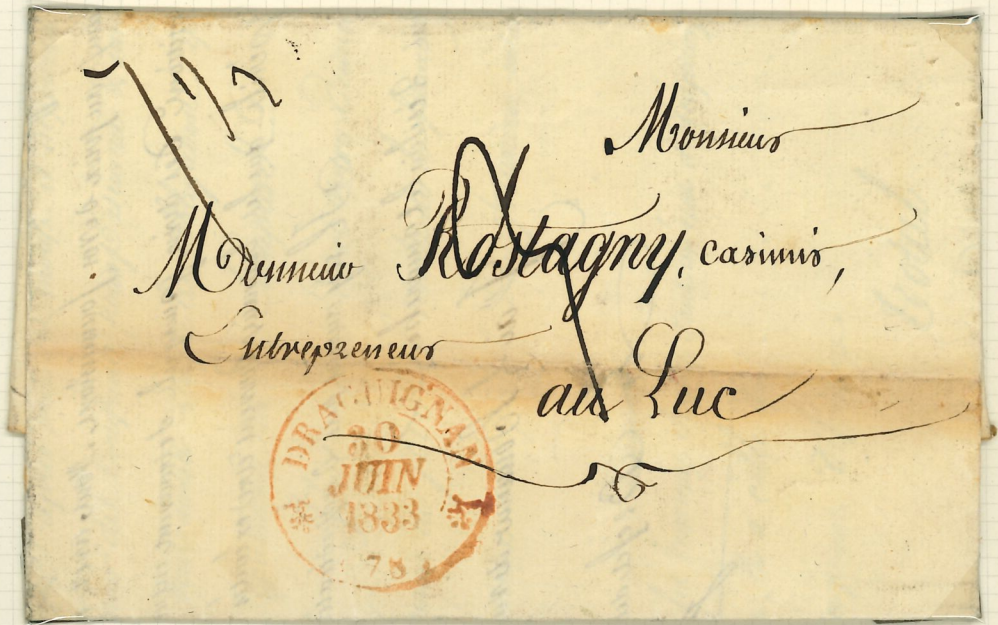 Monsieur
Monsieur Rostagny, casimir,
Entrepreneur
au Luc
DRAGUIGNAN
JUIN
1833
78